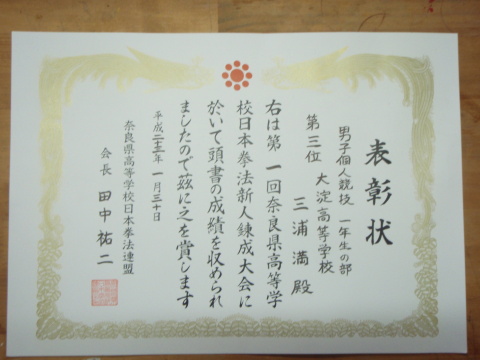 表彰状
男子個人競技 一年生の部
第三位 大淀高等学校
三浦満殿
右は第一回奈良県高等学
校日本拳法新人錬成大会に
於いて頭書の成績を収められ
ましたので茲に之を賞します
平成二十三年一月三十日
奈良県高等学校日本拳法連盟
会長 田中祐二